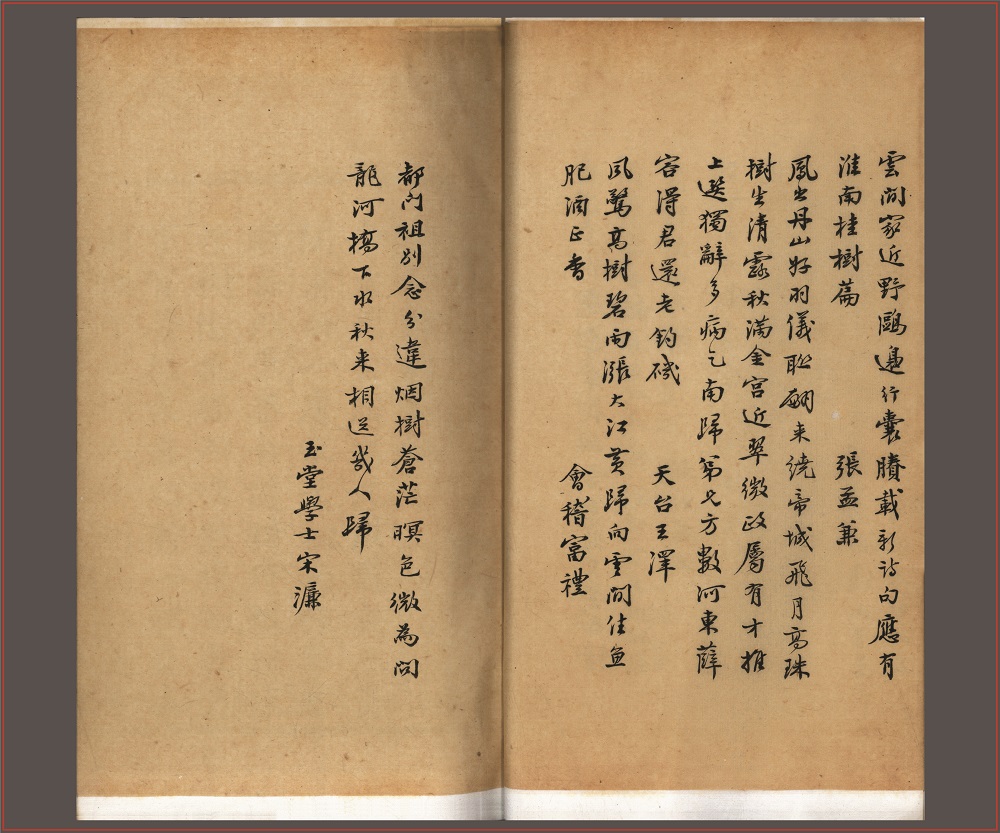 雲間家近野鷗邊行囊賸載新詩句應有
淮南桂樹篇
張孟兼
鳳出丹山好羽儀聯翩来繞帝城飛月高珠
樹生清露秋滿金宮近翠微政屬有才推
上選獨辭多病乞南歸第七方數河東薛
容得君還老釣磯
天台王澤
風驚高樹碧雨漲大江黃歸向雲間住魚
肥酒正香
會稽富禮
都门祖别念分違烟樹蒼茫暝色微為问
龍河橋下水秋来相送幾人歸
玉堂學士宋濂